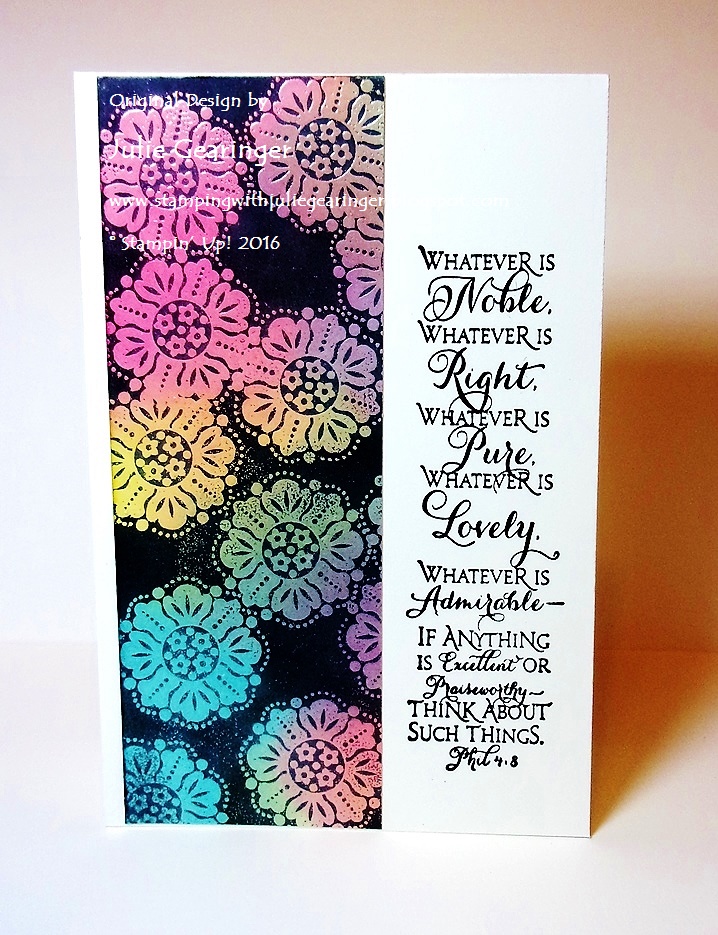 Original Design by
Julie Gearinger
www.stampingwithjuliegearinger
© Stampin' Up! 2016
WHATEVER IS
Noble,
WHATEVER IS
Right,
WHATEVER IS
Pure,
WHATEVER IS
Lovely,
WHATEVER IS
Admirable—
IF ANYTHING
IS Excellent OR
Praiseworthy—
THINK ABOUT
SUCH THINGS.
Phil 4:8